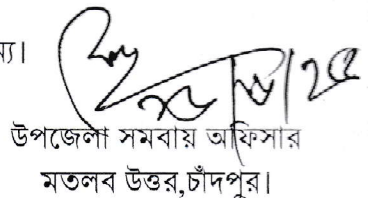 উপজেলা সমবায় অফিসার
মতলব উত্তর,চাঁদপুর।